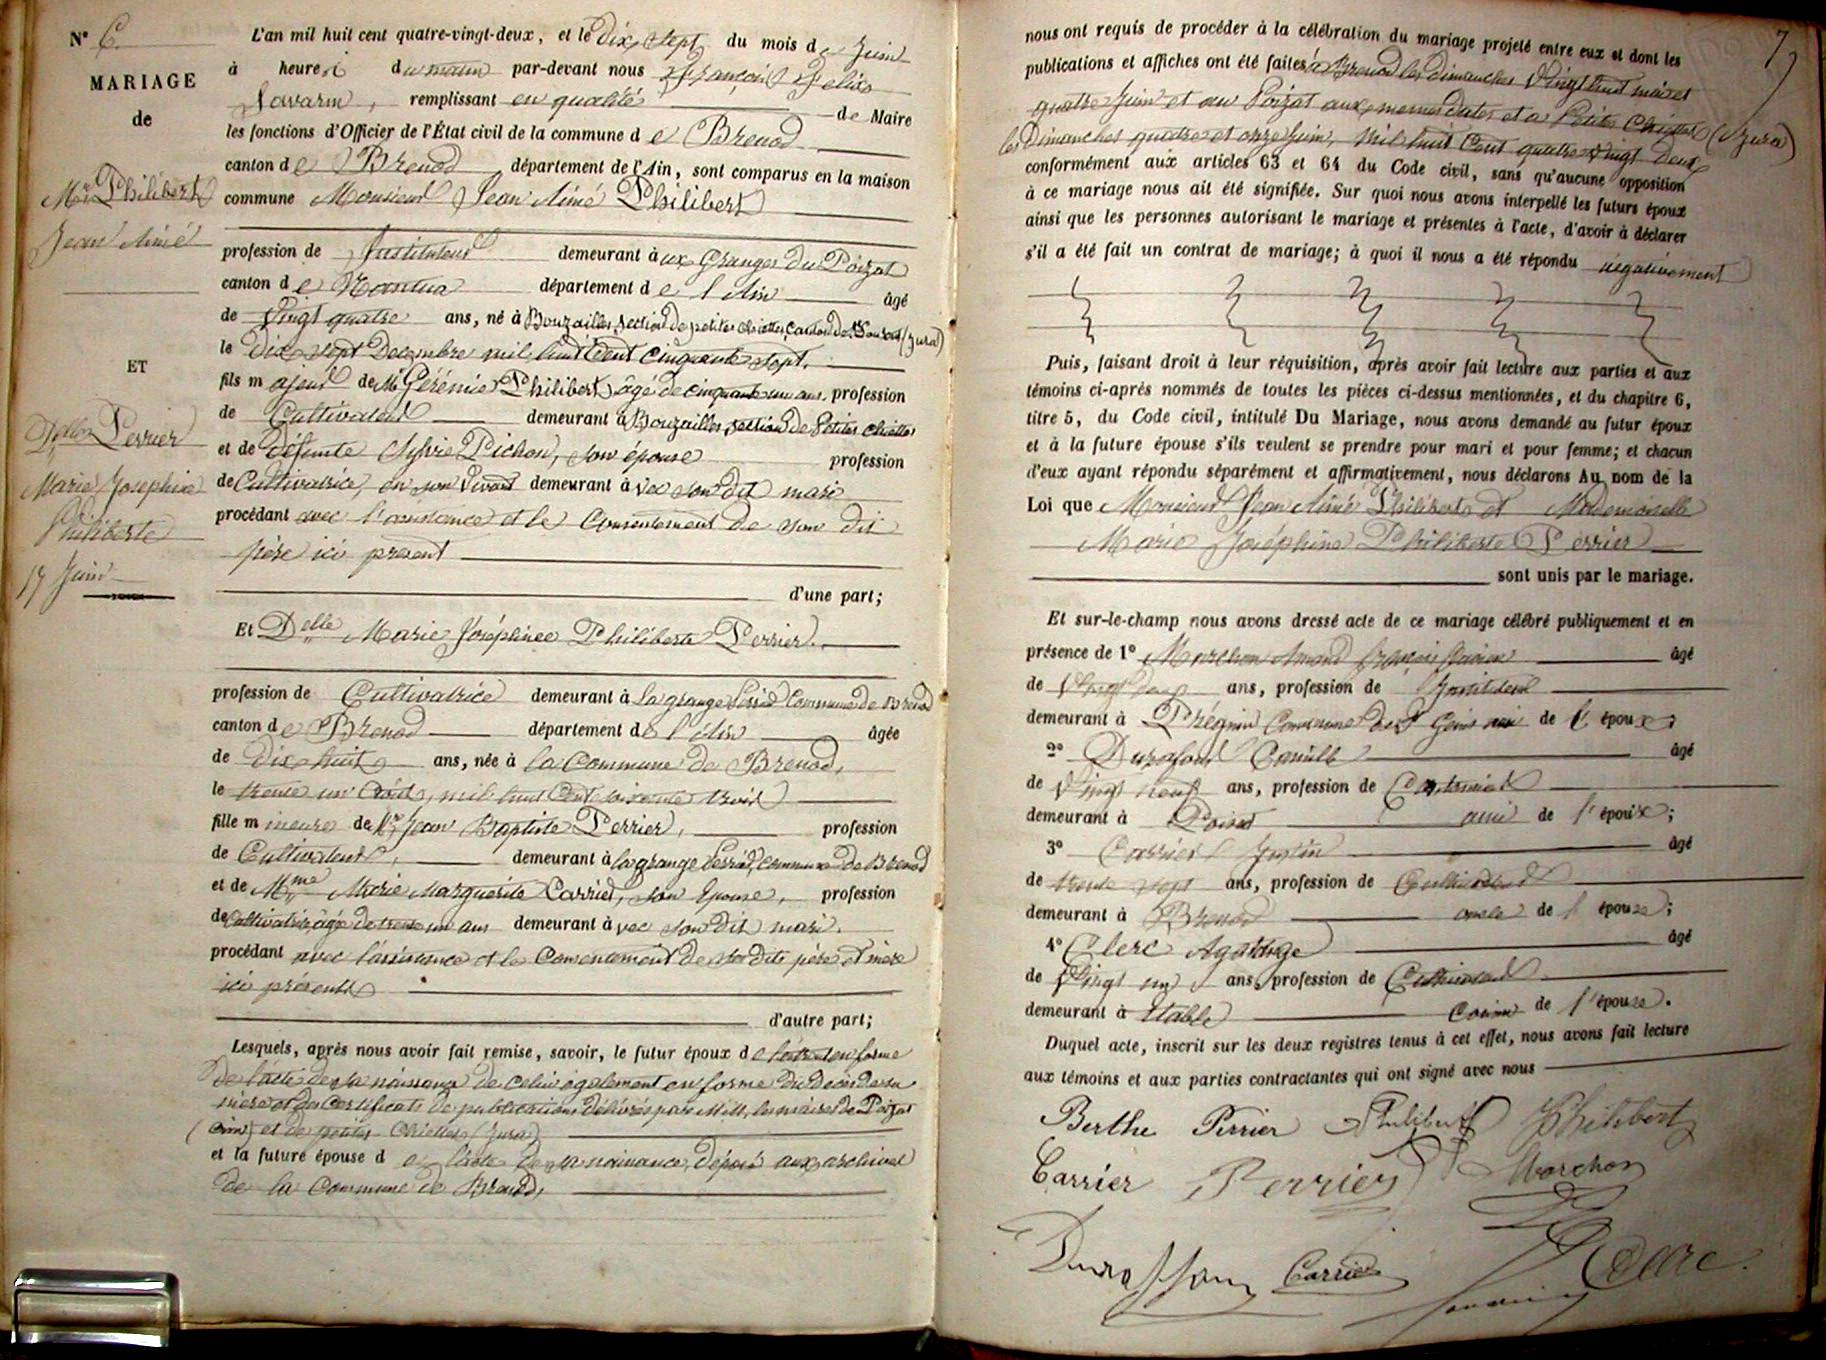 N° 6
MARIAGE
de
Mr Philibert
Jean Aimé
ET
Delle Perrier
Marie Joséphine
Philiberte
17 Juin
L'an mil huit cent quatre-vingt-deux, et le dix sept du mois de Juin
à heures du matin par-devant nous François Félix
Savarin, remplissant en qualité de Maire
les fonctions d'Officier de l'État civil de la commune de Brenod
canton de Brenod département de l'Ain, sont comparus en la maison
commune Monsieur Jean Aimé Philibert
profession de Instituteur demeurant aux Granges du Poizat
canton de Nantua département de l'Ain âgé
de Vingt quatre ans, né à Bouzailles, section de petites chiettes, canton de St Laurent (Jura)
le dix sept Decembre mil huit cent cinquante sept.
fils majeur de Mr Gérémie Philibert âgé de cinquante un ans, profession
de Cultivateur demeurant à Bouzailles section de Petites Chiettes
et de défunte Sylvie Pichon, son épouse profession
de Cultivatrice, en son vivant demeurant avec son dit mari
procédant avec l'assistance et le Consentement de son dit
père ici présent
d'une part;
Et Delle Marie Joséphine Philiberte Perrier.
profession de Cultivatrice demeurant à la grange commune de Brenod
canton de Brenod département de l'Ain âgée
de dix huit ans, née à la Commune de Brenod,
le trente un Août, mil huit cent soixante trois
fille mineure de Mr Jean Baptiste Perrier, profession
de Cultivateur, demeurant à la grange commune de Brenod
et de Mme Marie Marguerite Carrier, son épouse, profession
de Cultivatrice, âgée de trente un ans demeurant avec son dit mari.
procédant avec l'assistance et le Consentement de ses dits père et mère
ici présents
d'autre part;
Lesquels, après nous avoir fait remise, savoir, le futur époux de l'extrait en forme
de l'acte de sa naissance de celui également en forme du décès de sa
mère et des Certificats de publications délivrés par MM. les maires de Poizat
(Ain) et de petites Chiettes (Jura)
et la future épouse de l'acte de sa naissance, déposé aux archives
de la Commune de Brenod,
7
nous ont requis de procéder à la célébration du mariage projeté entre eux et dont les
publications et affiches ont été faites à Brenod les dimanches Vingt huit mai et
quatre Juin et au Poizat aux mêmes dates et a Petites Chiettes (Jura)
les Dimanches quatre et onze Juin, mil huit Cent quatre vingt deux
conformément aux articles 63 et 64 du Code civil, sans qu'aucune opposition
à ce mariage nous ait été signifiée. Sur quoi nous avons interpellé les futurs époux
ainsi que les personnes autorisant le mariage et présentes à l'acte, d'avoir à déclarer
s'il a été fait un contrat de mariage; à quoi il nous a été répondu négativement
Puis, faisant droit à leur réquisition, après avoir fait lecture aux parties et aux
témoins ci-après nommés de toutes les pièces ci-dessus mentionnées, et du chapitre 6,
titre 5, du Code civil, intitulé Du Mariage, nous avons demandé au futur époux
et à la future épouse s'ils veulent se prendre pour mari et pour femme; et chacun
d'eux ayant répondu séparément et affirmativement, nous déclarons Au nom de la
Loi que Monsieur Jean Aimé Philibert et Mademoiselle
Marie Joséphine Philiberte Perrier
sont unis par le mariage.
Et sur-le-champ nous avons dressé acte de ce mariage célébré publiquement et en
présence de 1° Marchon Amand François âgé
de Vingt deux ans, profession de Instituteur
demeurant à Prégnin Commune de St Genis ami de l'époux;
2° Duraffour Camille âgé
de Vingt neuf ans, profession de
demeurant à Poizat ami de l'époux;
3° Carrier Justin âgé
de trente sept ans, profession de Cultivateur
demeurant à Brenod oncle de l'épouse;
4° Clerc Agathange âgé
de Vingt un ans, profession de Cultivateur
demeurant à Etable cousin de l'épouse.
Duquel acte, inscrit sur les deux registres tenus à cet effet, nous avons fait lecture
aux témoins et aux parties contractantes qui ont signé avec nous
Berthe Perrier Philibert Philibert
Carrier Perrier Marchon
Duraffour Carrier Clerc